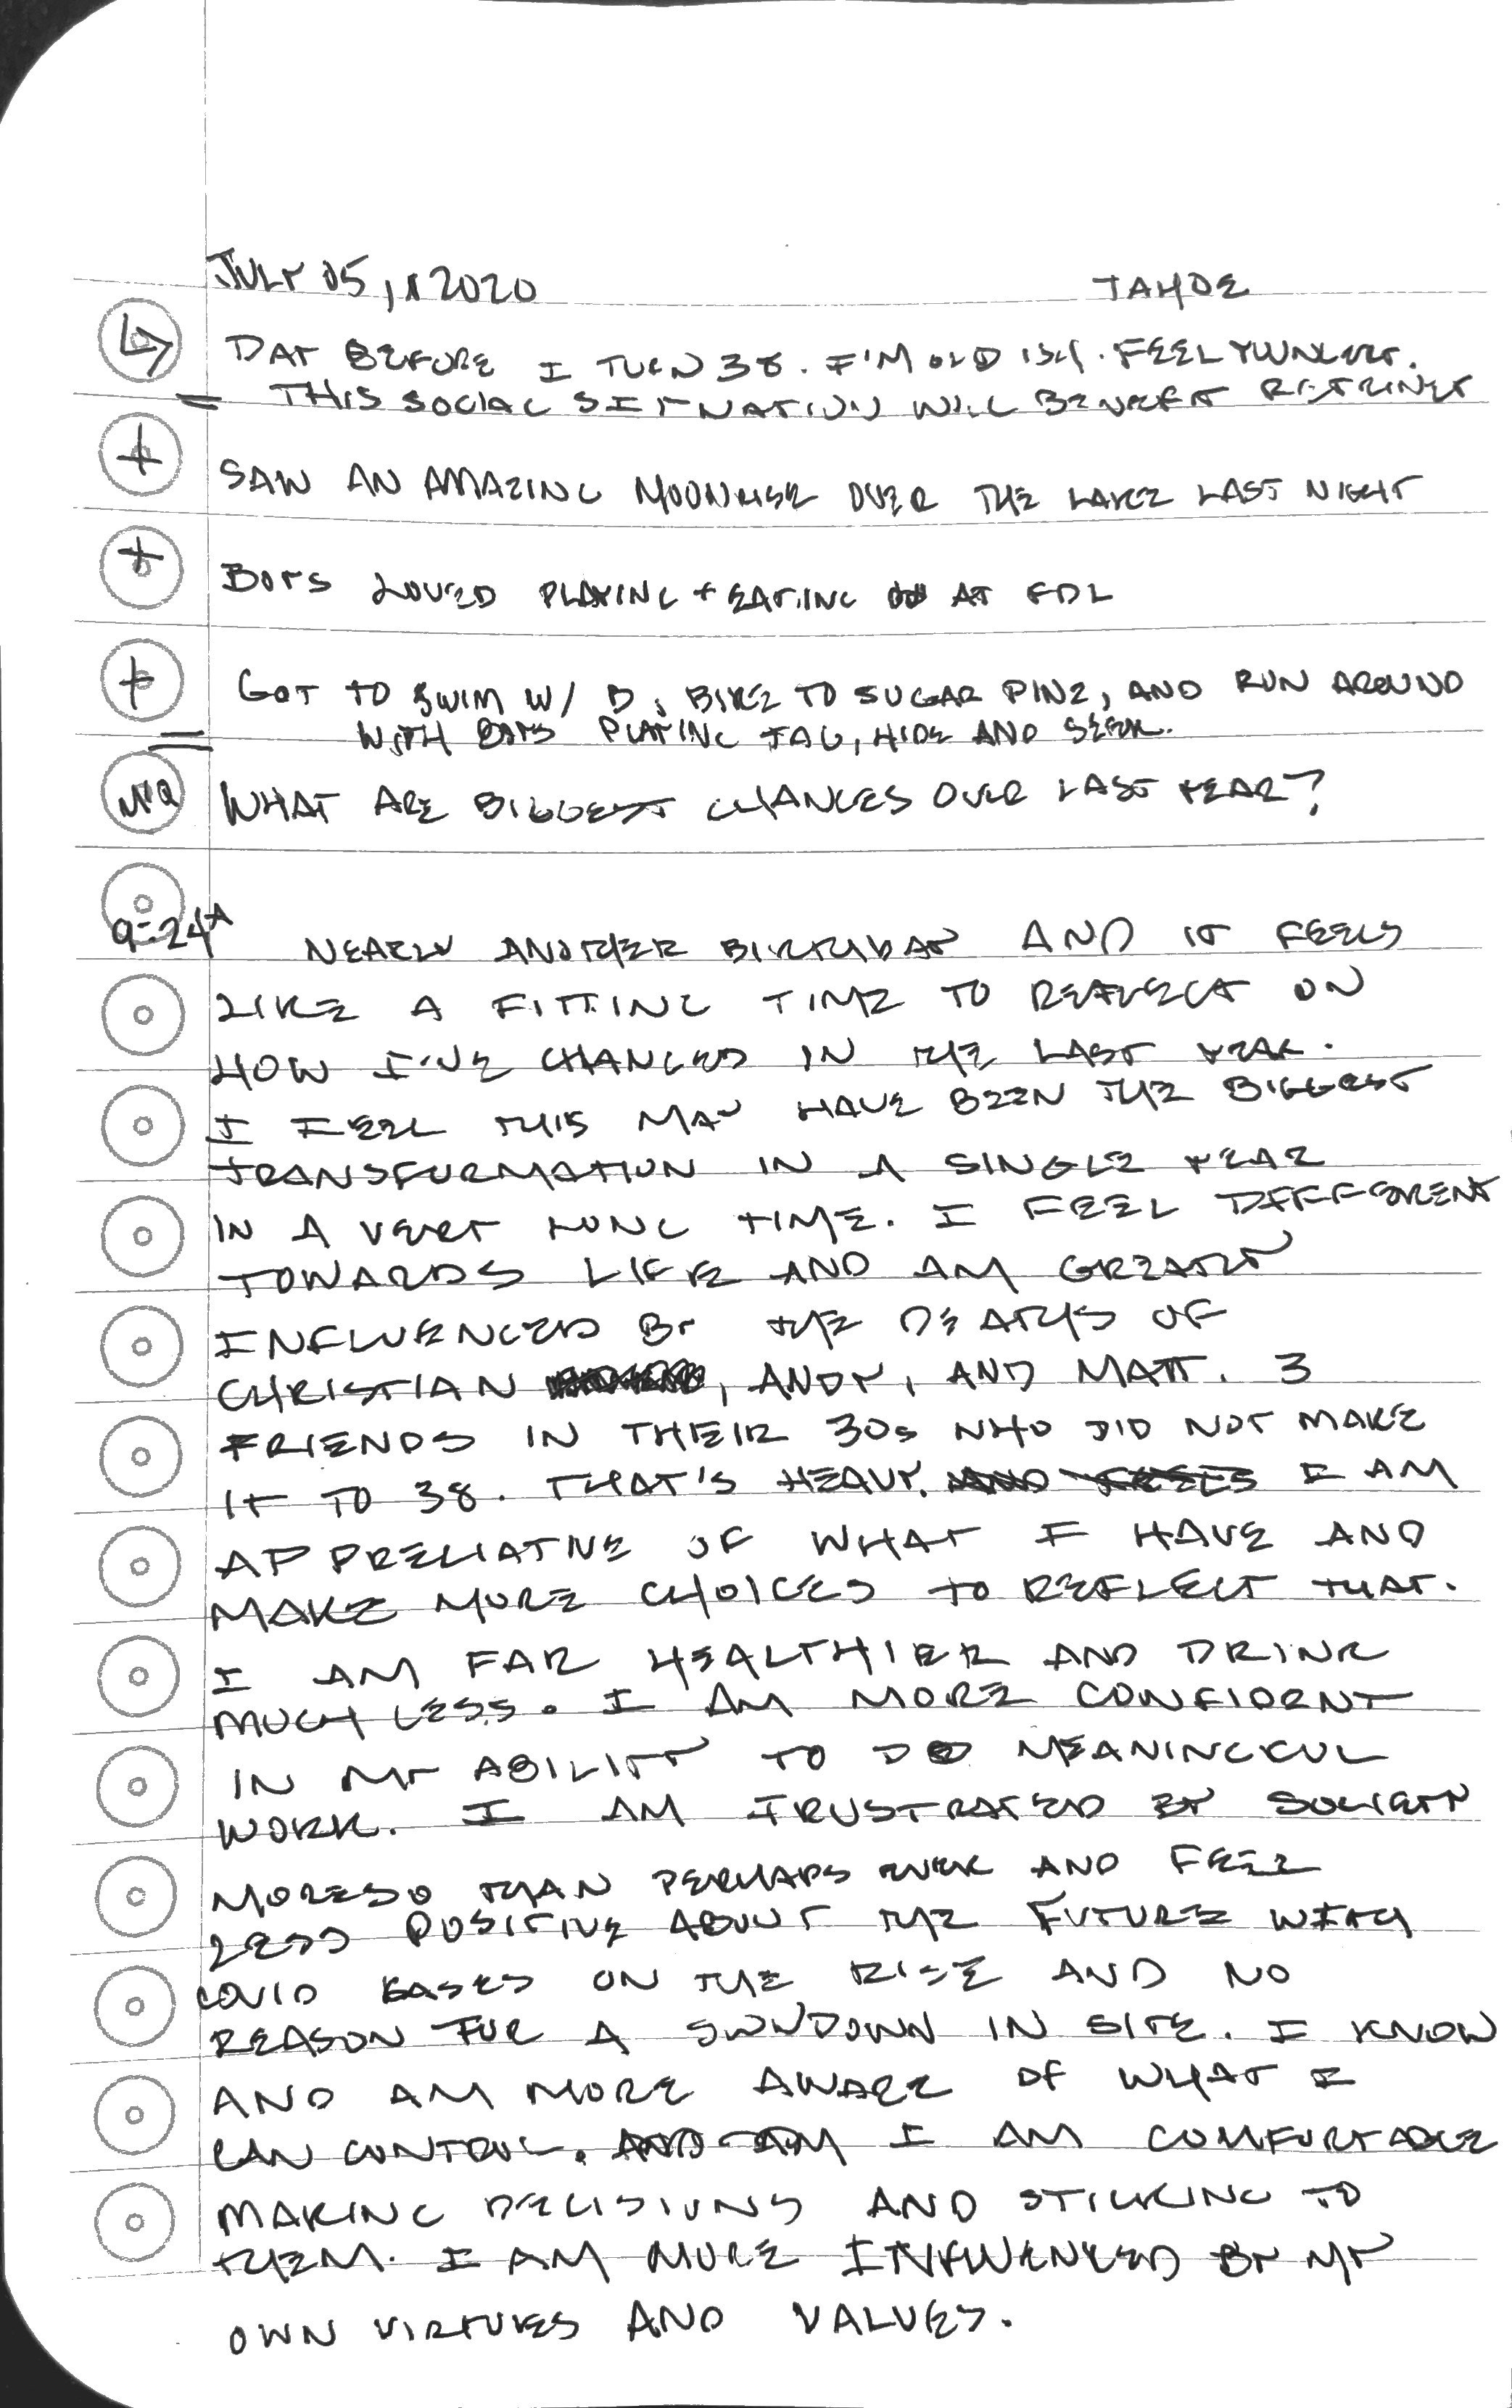 JULY 05, 2020 TAHOE
DAY BEFORE I TURN 38. I'M OLD ISH. FEEL YOUNGER.
= THIS SOCIAL SITUATION WILL BENEFIT
+ SAW AN AMAZING MOONRISE OVER THE LAKE LAST NIGHT
+ BOYS LOVED PLAYING + EATING AT FDL
+ GOT TO SWIM W/ D, BIKE TO SUGAR PINE, AND RUN AROUND
= WITH BOYS PLAYING TAG, HIDE AND SEEK.
WHAT ARE BIGGEST CHANGES OVER LAST YEAR?
9:24A NEARLY ANOTHER BIRTHDAY AND IT FEELS
LIKE A FITTING TIME TO REFLECT ON
HOW I'VE CHANGED IN THE LAST YEAR.
I FEEL THIS MAY HAVE BEEN THE BIGGEST
TRANSFORMATION IN A SINGLE YEAR
IN A VERY LONG TIME. I FEEL DIFFERENT
TOWARDS LIFE AND AM GREATLY
INFLUENCED BY THE DEATHS OF
CHRISTIAN, ANDY, AND MATT. 3
FRIENDS IN THEIR 30s WHO DID NOT MAKE
IT TO 38. THAT'S HEAVY. I AM
APPRECIATIVE OF WHAT I HAVE AND
MAKE MORE CHOICES TO REFLECT THAT.
I AM FAR HEALTHIER AND DRINK
MUCH LESS. I AM MORE CONFIDENT
IN MY ABILITY TO DO MEANINGFUL
WORK. I AM FRUSTRATED BY SOCIETY
MORESO THAN PERHAPS EVER AND FEEL
LESS POSITIVE ABOUT THE FUTURE WITH
COVID CASES ON THE RISE AND NO
REASON FOR A SLOWDOWN IN SITE. I KNOW
AND AM MORE AWARE OF WHAT I
CAN CONTROL. I AM COMFORTABLE
MAKING DECISIONS AND STICKING TO
THEM. I AM MORE INFLUENCED BY MY
OWN VIRTUES AND VALUES.